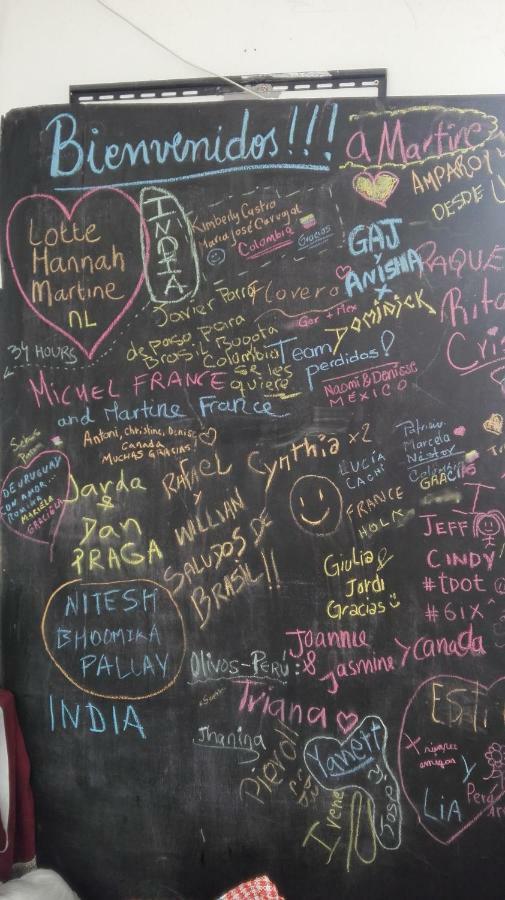 Bienvenidos!!!
a Martire
AMPARO
DESDE
Lotte
Hannah
Martine
NL
INDIA
Kimberly Castro
Maria José Carvajal
Colombia
Gracias
GAJ
y
ANISHA
Javier Parra
de paso para
Brasil Bogota
Colombia
se les
quiere
Flovero
Gor + Alex
DOMINICK
Team
perdidos!
34 HOURS
Naomi & Denisse
MEXICO
MICHEL FRANCE
and Martine France
Antoni, Christine, Denise
Canada
MUCHAS GRACIAS!
DE URUGUAY
CON AMOR...
ROMINA
MARIELA
GRACIELA
Jarda
&
Dan
PRAGA
RAFAEL
y
WILLIAN
SALUDOS DE
BRASIL!!
Cynthia x2
LUCIA
CACHI
FRANCE
HOLA
Patricia
Marcela
Néstor
Colombia
GRACIAS
I
JEFF
CINDY
#tdot
#6ix
Giulia &
Jordi
Gracias
NITESH
BHOOMIKA
PALLAV
INDIA
Olivos-Perú:
Joannie
& Jasmine y Canada
Triana
Jhanina
Pierol
Yanett
Jose y
Irene
Esti
amigas
y
LIA
Perú